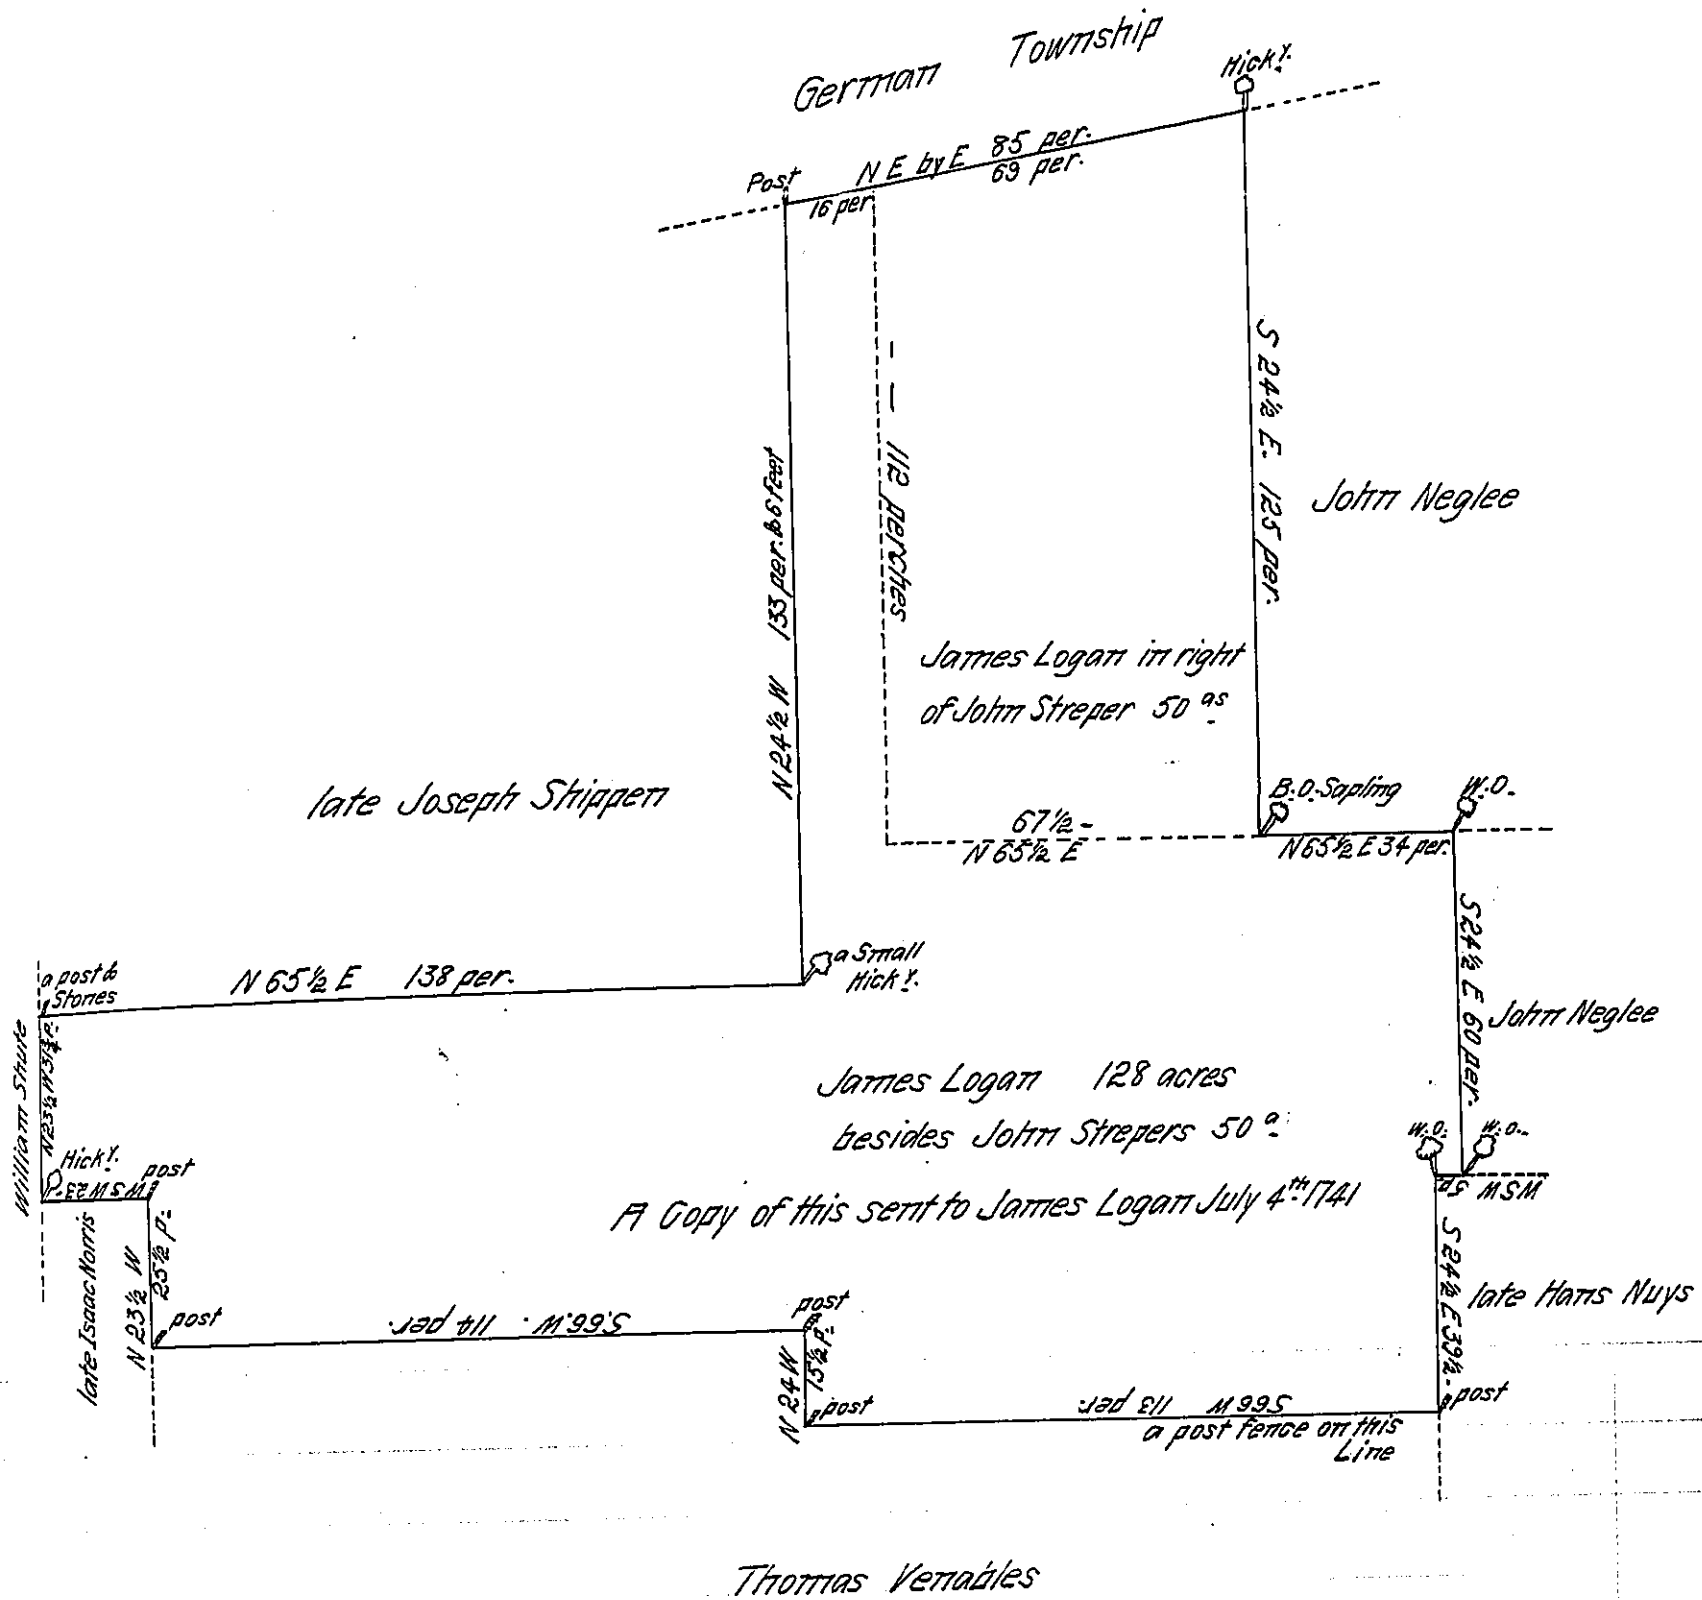 German Township
Hicky.
Post
N E by E 85 per.
69 per.
16 per
S 24½ E. 125 per.
112 perches
N 24½ W 133 per. & 6 feet
John Neglee
James Logan in right
of John Streper 50 as
late Joseph Shippen
B.O. Sapling
W.O.
67½
N 65½ E
N 65½ E 34 per.
S 24½ E 60 per.
a post &
Stones
N 65½ E 138 per.
a Small
Hicky.
John Neglee
William Shute
N 23½ W 31¾ P.
James Logan 128 acres
besides John Strepers 50 a.
W.O.
W.O.
Hicky.
post
W S W 23 P.
WSW
5 p
A Copy of this sent to James Logan July 4th 1741
late Isaac Norris
N 23½ W
25½ P.
post
S.66.W. 114 per.
post
N 24 W
15½ P.
post
S 24½ E 39½
late Hans Nuys
post
S 66 W 113 per.
a post fence on this
Line
Thomas Venables